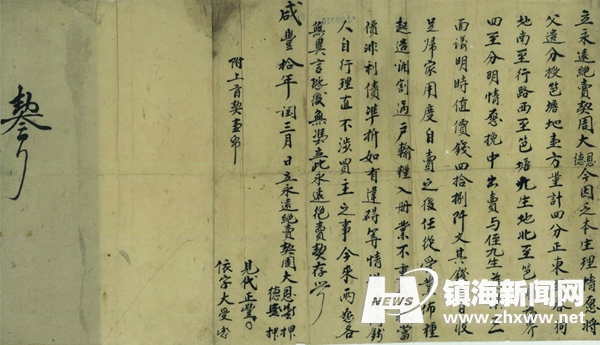 立永遠絕賣契周大恩德今因乏本生理情愿將
父遺分授笆塘地壹方筆計四分正東至
地南至行路西至笆塘先生地北至笆
四至分明情愿挽中出賣與侄先生
面議明時值價錢四拾捌阡文其錢收
足歸家用度自賣之後任從管業佈種
起造開割過戶輸糧入冊業不重
價非利債準折如有違碍等情
人自行理直不涉買主之事今來兩愿各
無異言恐後無憑立此永遠絕賣契存
咸豐拾年閏三月 日立永遠絕賣契周大恩押
德押
附上首契壹帋
見代正
依字大受
契
H
镇海新闻网
www.zhxww.net